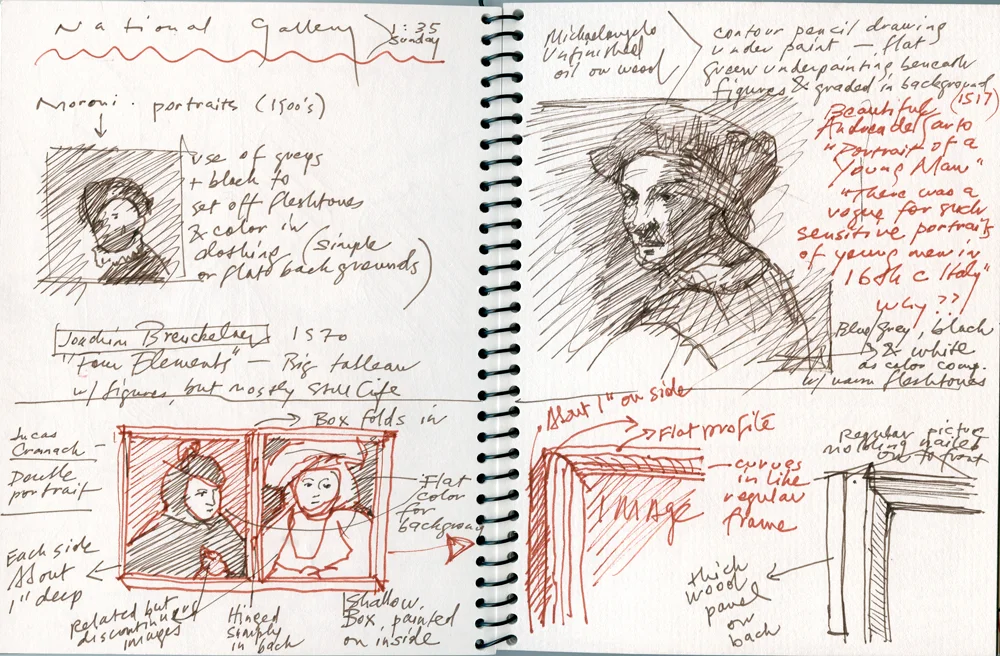 National Gallery
1:35
Sunday
Moroni · portraits (1500's)
use of greys
+ black to
set off fleshtones
& color in
clothing (simple
or flat backgrounds)
Joachim
1570
"Four Elements" — Big tableau
w/ figures, but mostly Still Life
Box folds in
Lucas
Cranach
Double
portrait
Flat
color
for
background
Each side
About
1" deep
Related but
discontinuous
images
Hinged
simply
in back
Shallow
Box, painted
on inside
Michaelangelo
Unfinished
oil on wood
contour pencil drawing
under paint — flat
green underpainting beneath
figures & graded in background
Beautiful (1517)
Andrea del Sarto
"Portrait of a
Young Man"
"There was a
vogue for such
sensitive portraits
of young men in
16th c Italy"
Why??
Blue/grey, black
& white
as color comp.
w/ warm fleshtones
About 1" on side
Flat profile
curves
in like
regular
frame
IMAGE
Regular picture
molding nailed
on to front
thick
wood
panel
on
back